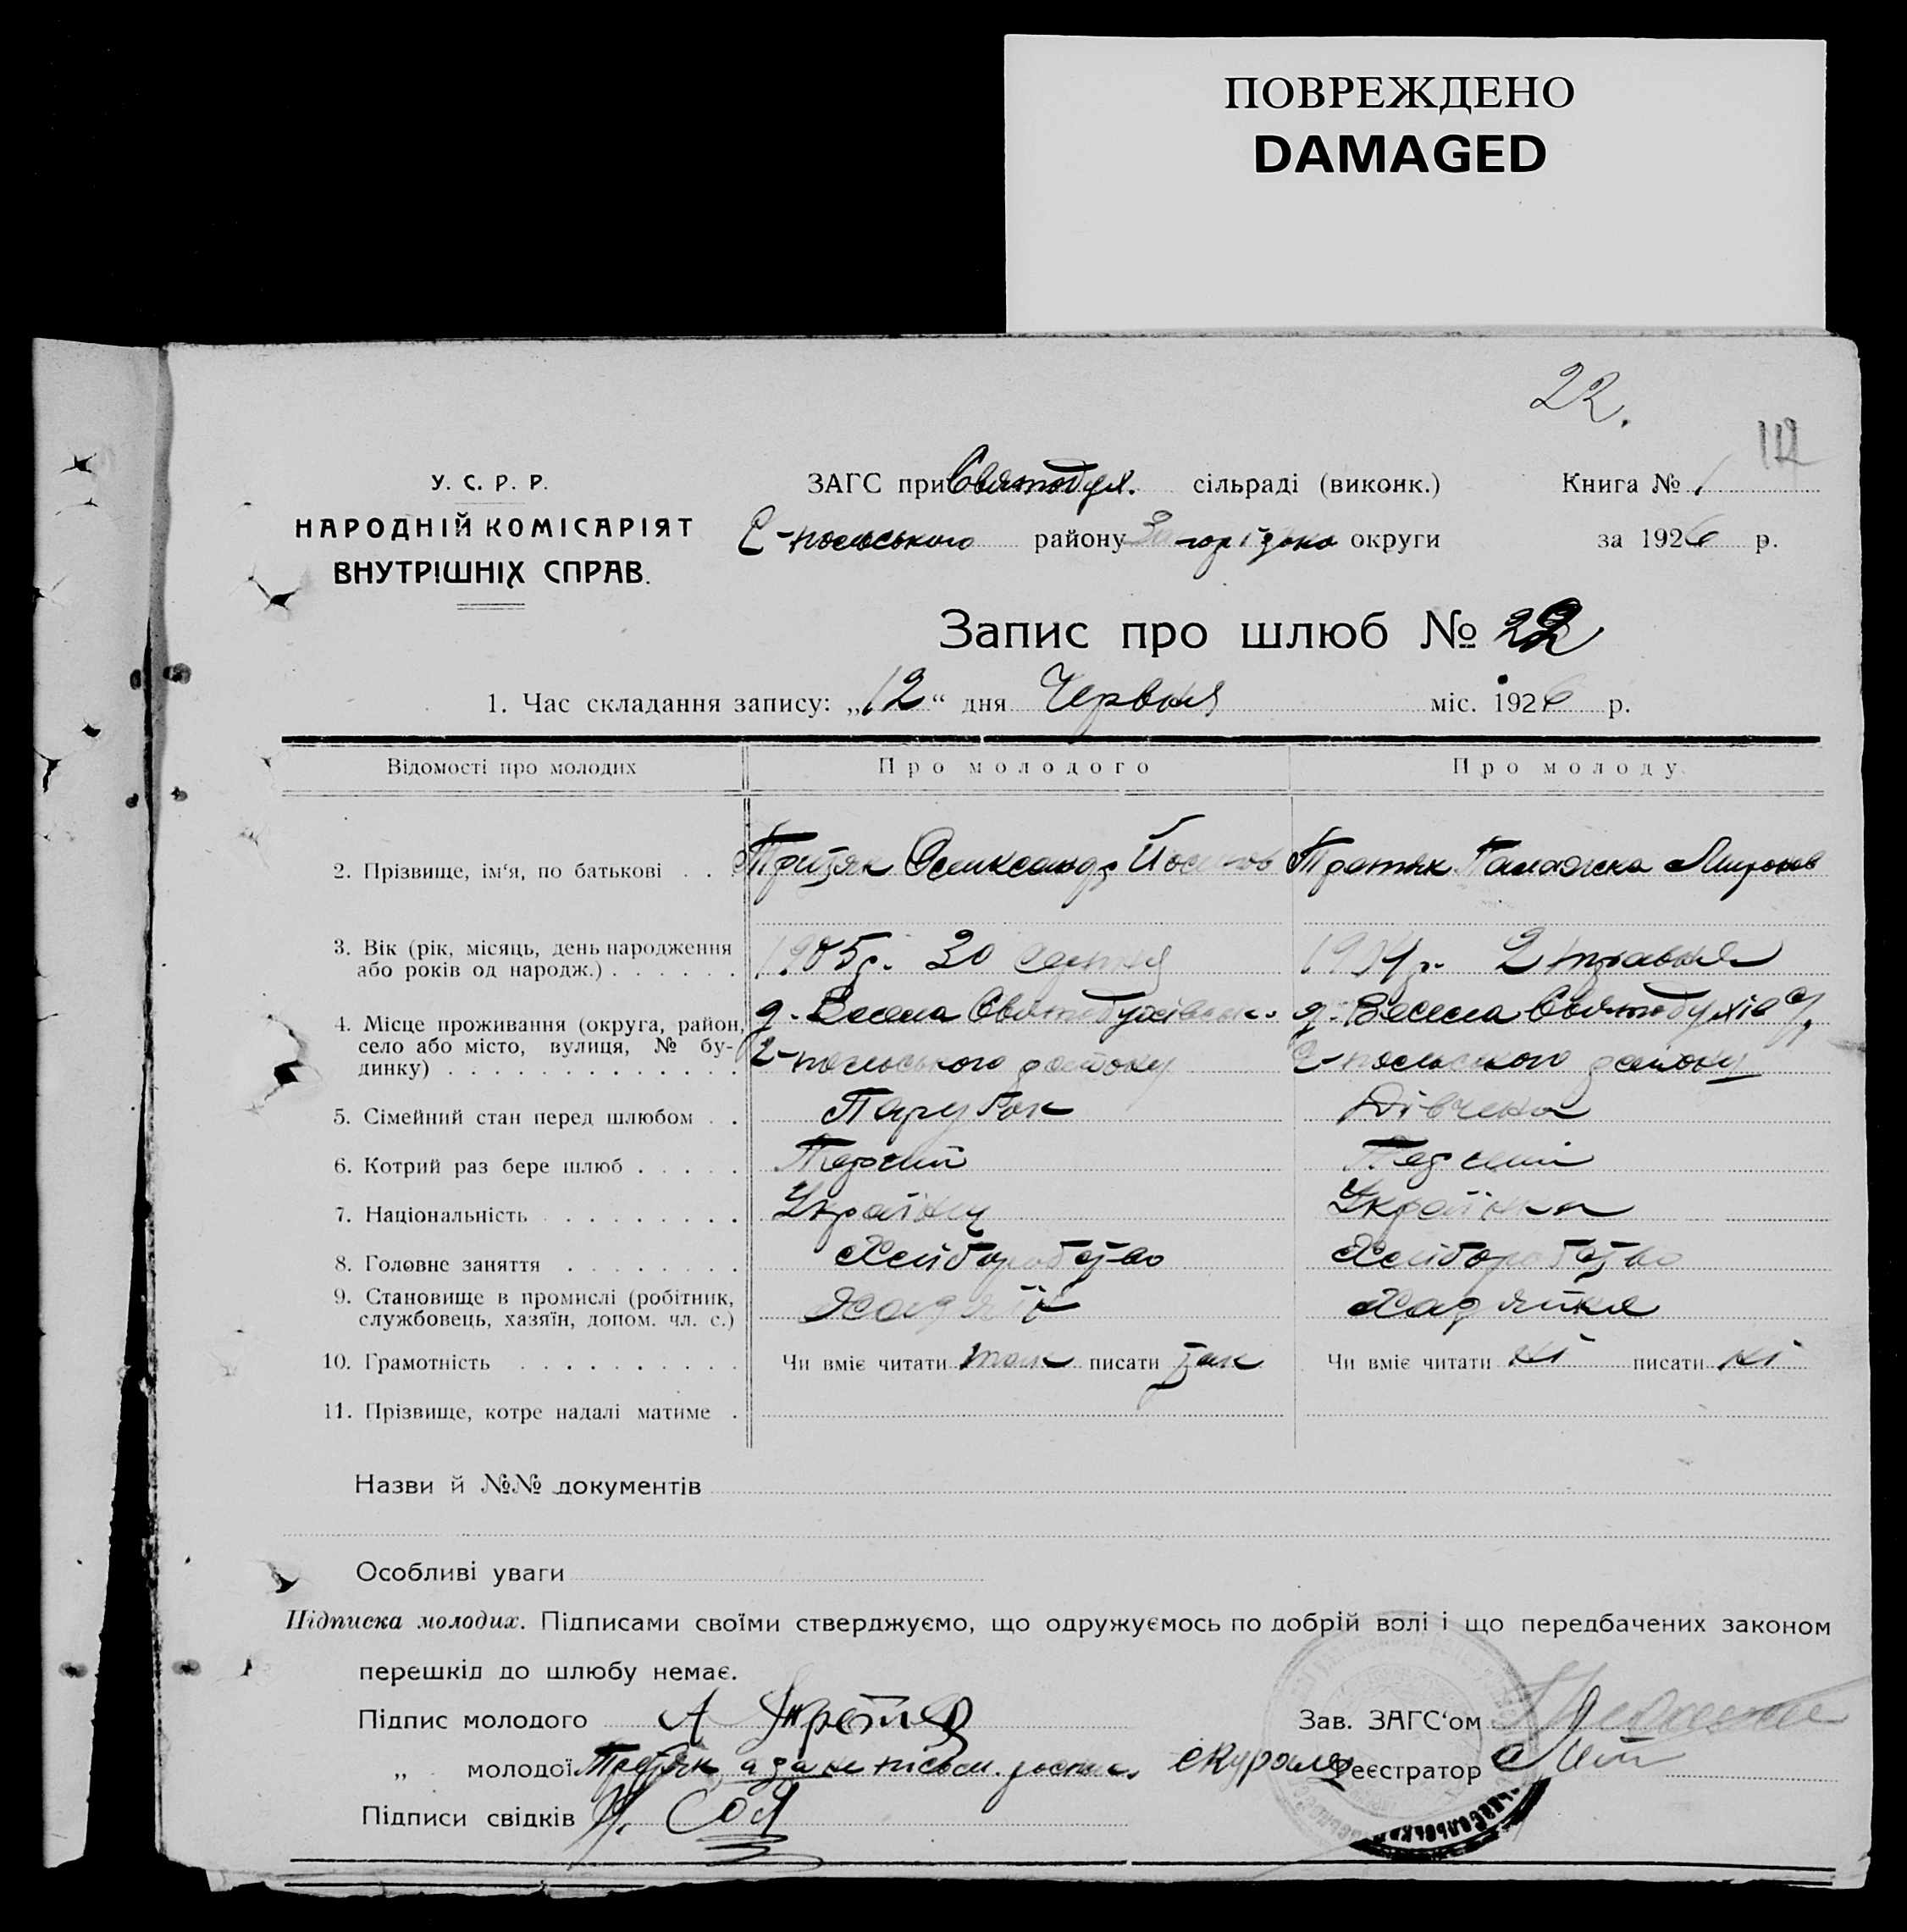 ПОВРЕЖДЕНО
DAMAGED
22.
У. С. Р. Р.
НАРОДНІЙ КОМІСАРІЯТ
ВНУТРІШНІХ СПРАВ.
ЗАГС при Святодух. сільраді (виконк.)
Книга № 1
району округи
за 1926 р.
Запис про шлюб № 22
1. Час складання запису: „12“ дня Червня міс. 1926 р.
Відомості про молодих
Про молодого
Про молоду
2. Прізвище, ім‘я, по батькові . . . Третяк Олександр Йосипов Третяк Миронов
3. Вік (рік, місяць, день народження
або років од народж.) . . . . . . 1905р. 30 серпня 1904р. 2 травня
4. Місце проживання (округа, район, Весела Весела
село або місто, вулиця, № бу-
динку) . . . . . . . . . . . . .
5. Сімейний стан перед шлюбом . . Парубок Дівчена
6. Котрий раз бере шлюб . . . . . Перший Перший
7. Національність . . . . . . . . . Українец Українка
8. Головне заняття . . . . . . . . Хліборобство Хліборобство
9. Становище в промислі (робітник,
службовець, хазяїн, допом. чл. с.) Хазяїн Хазяйка
10. Грамотність . . . . . . . . . . Чи вміє читати так писати так Чи вміє читати ні писати ні
11. Прізвище, котре надалі матиме .
Назви й №№ документів
Особливі уваги
Підписка молодих. Підписами своїми стверджуємо, що одружуємось по добрій волі і що передбачених законом
перешкід до шлюбу немає.
Підпис молодого А
Зав. ЗАГС‘ом
„ молодої Третяк а за не письм. роспис.
Реєстратор
Підписи свідків